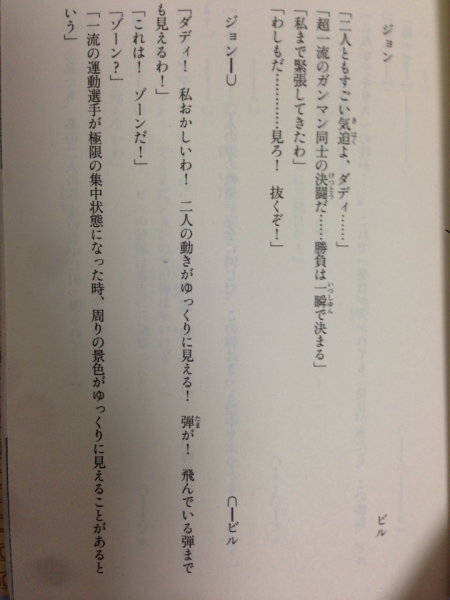 ジョン　ビル
「二人ともすごい気迫よ、ダディ……」
「超一流のガンマン同士の決闘だ……勝負は一瞬で決まる」
「私まで緊張してきたわ」
「わしもだ…………見ろ！　抜くぞ！」
ジョン━⊃　⊂━ビル
「ダディ！　私おかしいわ！　二人の動きがゆっくりに見える！　弾が！　飛んでいる弾まで
も見えるわ！」
「これは！　ゾーンだ！」
「ゾーン？」
「一流の運動選手が極限の集中状態になった時、周りの景色がゆっくりに見えることがあると
いう」